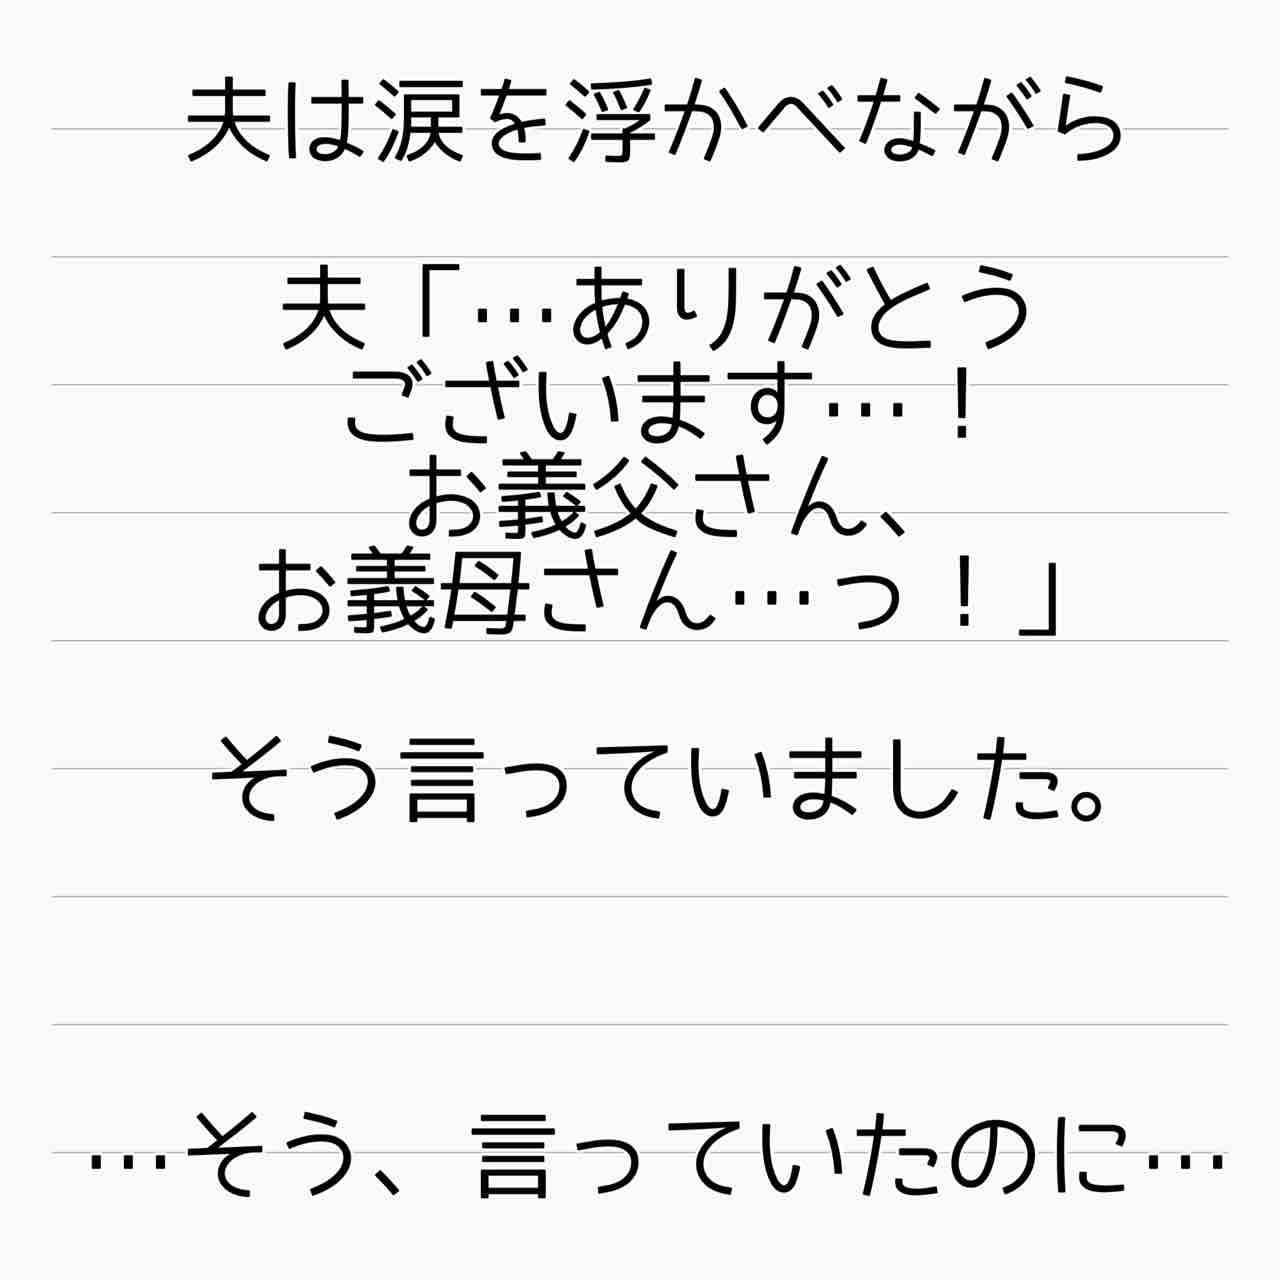 夫は涙を浮かべながら
夫「…ありがとう
ございます…！
お義父さん、
お義母さん…っ！」
そう言っていました。
…そう、言っていたのに…